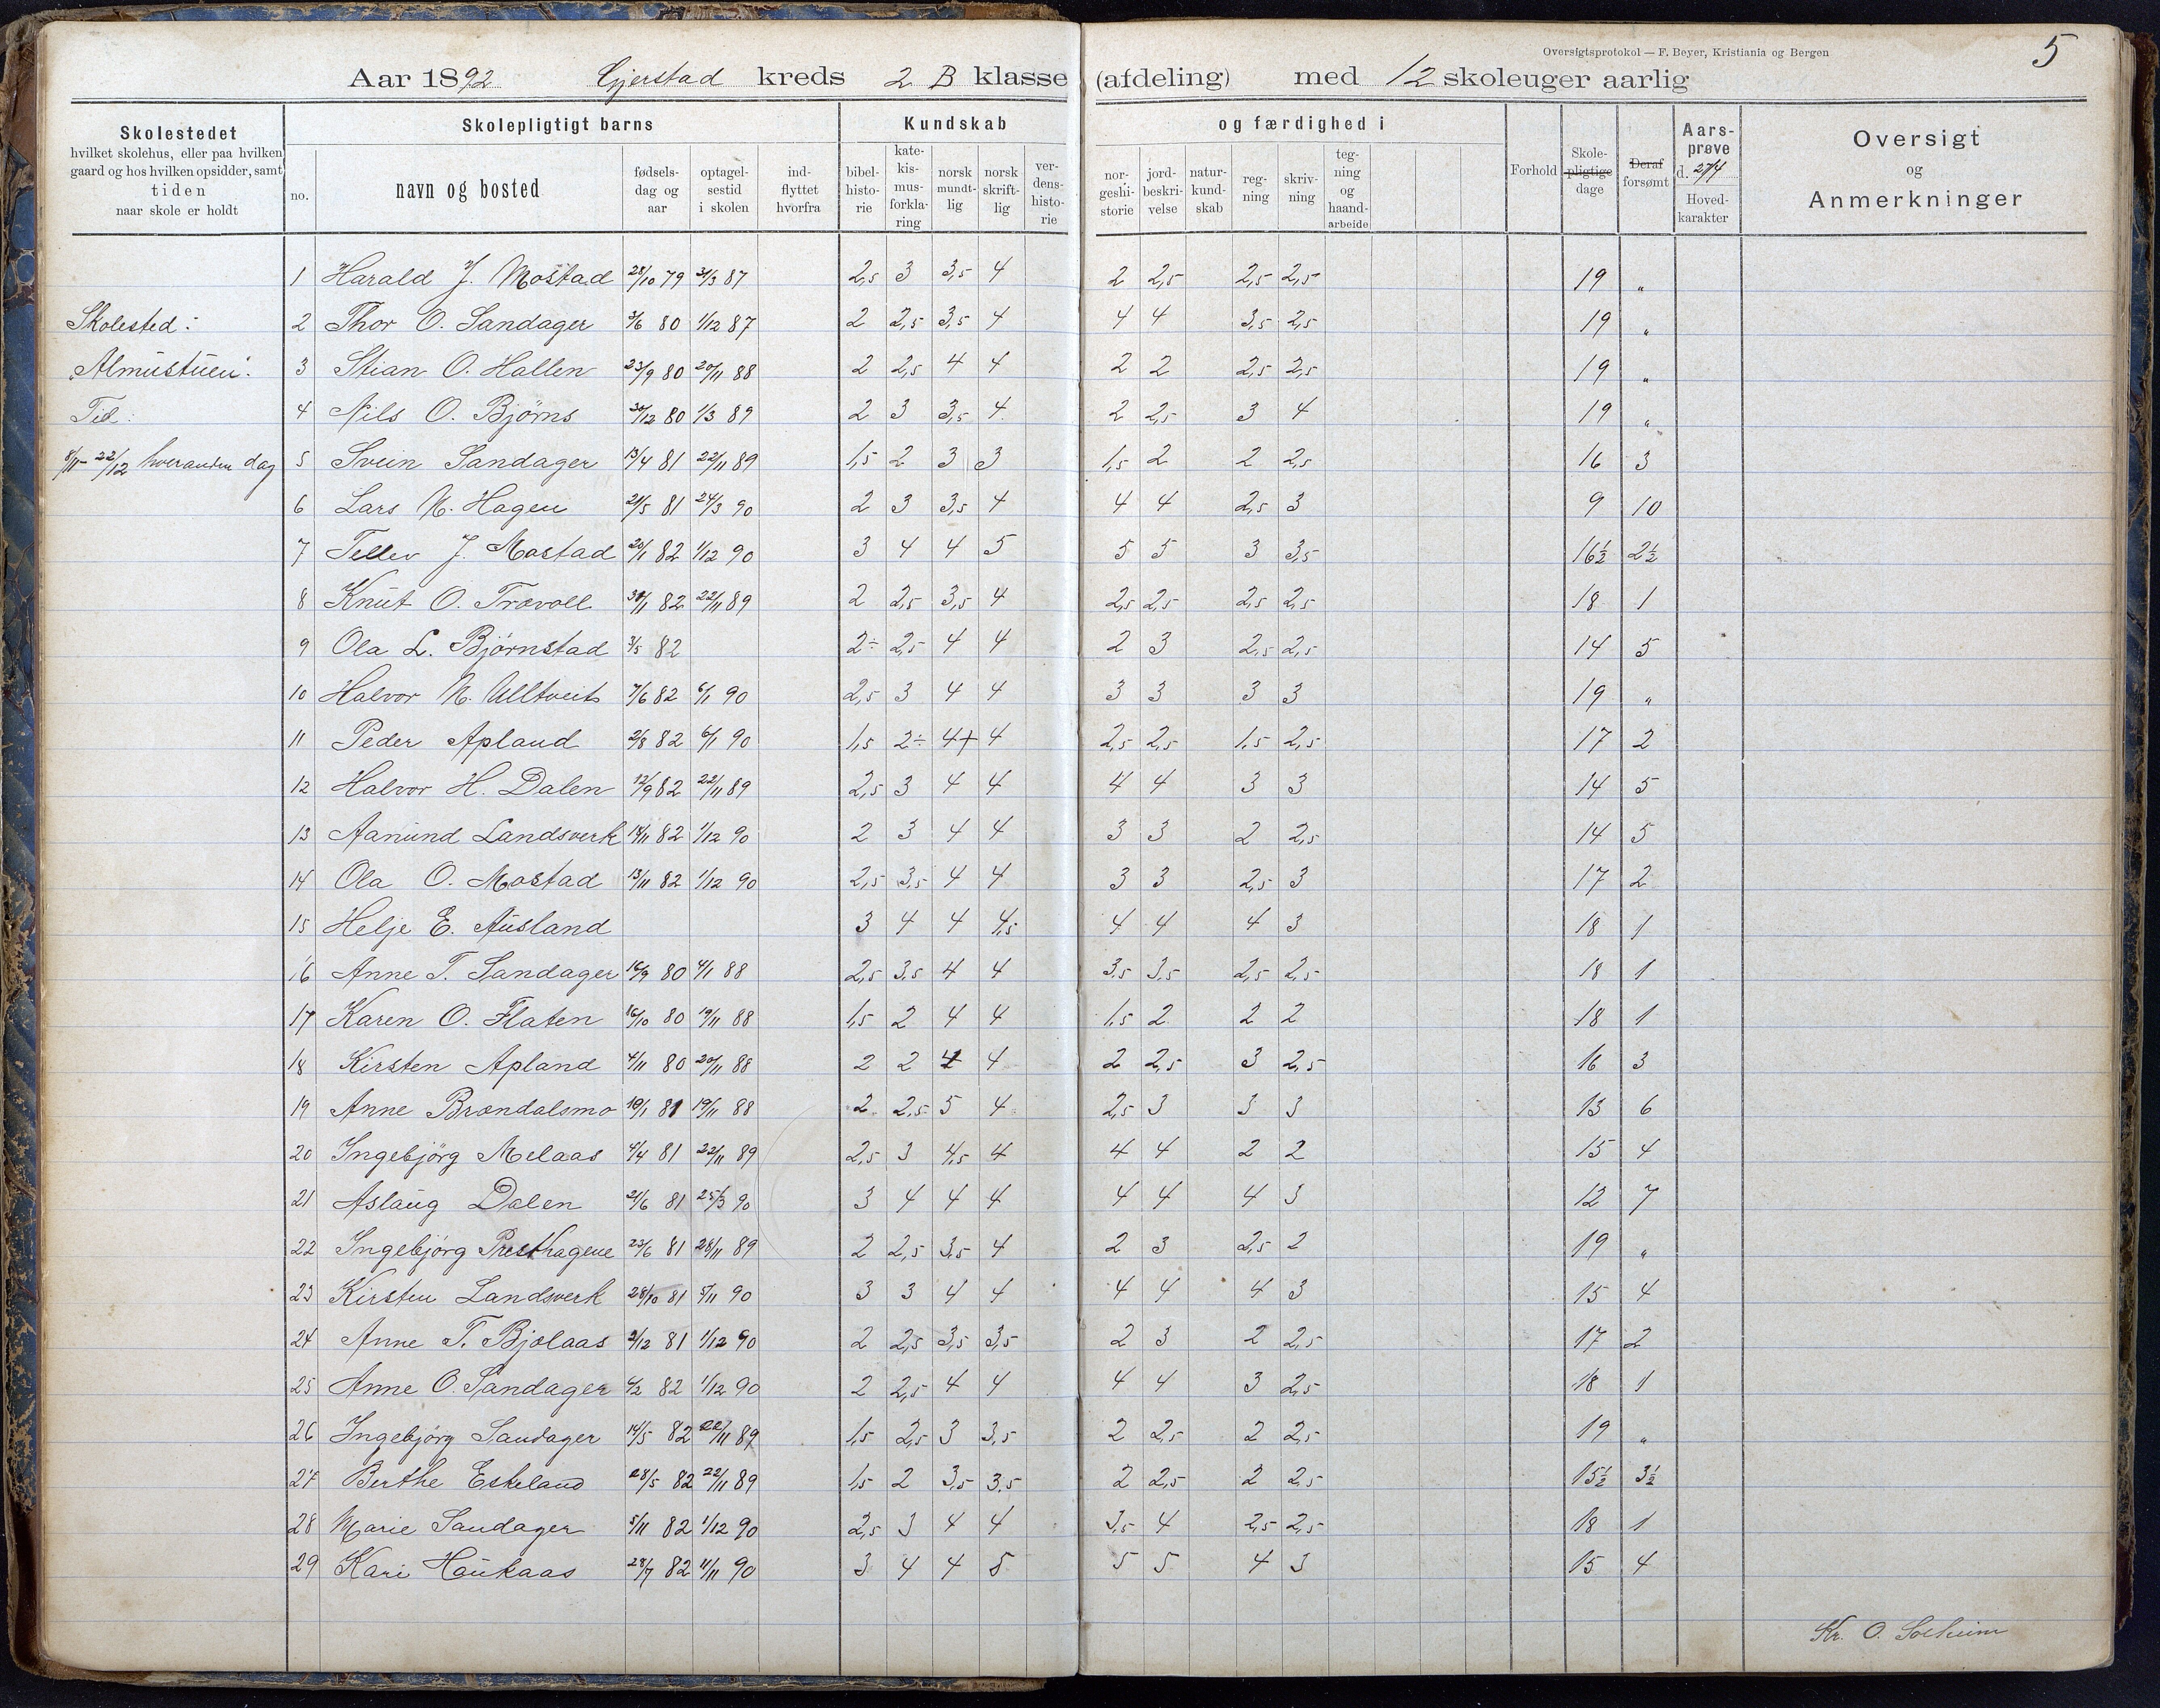 Oversigtsprotokol — F. Beyer, Kristiania og Bergen
5
Aar 1892 Gjerstad kreds 2 B klasse (afdeling) med 12 skoleuger aarlig
Skolestedet hvilket skolehus, eller paa hvilken gaard og hos hvilken opsidder, samt tiden naar skole er holdt
Skolepligtigt barns
no. navn og bosted fødsels-dag og aar optagel-sestid i skolen ind-flyttet hvorfra
Kundskab og færdighed i
bibel-histo-rie kate-kis-mus-forkla-ring norsk mundt-lig norsk skrift-lig ver-dens-histo-rie nor-geshi-storie jord-beskri-velse natur-kund-skab reg-ning skriv-ning teg-ning og haand-arbeide
Forhold Skole-pligtige dage Deraf forsømt Aars-prøve d. 27/4 Hoved-karakter
Oversigt og Anmerkninger
1 Harald J. Mostad 28/10 79 31/3 87 2,5 3 3,5 4 2 2,5 2,5 2,5 19 "
Skolested: 2 Thor O. Sandager 3/6 80 1/12 87 2 2,5 3,5 4 4 4 3,5 2,5 19 "
"Almustuen". 3 Stian O. Hallen 23/9 80 20/11 88 2 2,5 4 4 2 2 2,5 2,5 19 "
Tid: 4 Nils O. Bjørns 30/12 80 1/3 89 2 3 3,5 4 2 2,5 3 4 19 "
8/11 - 22/12 hveranden dag 5 Svein Sandager 13/4 81 22/11 89 1,5 2 3 3 1,5 2 2 2,5 16 3
6 Lars N. Hagen 21/5 81 24/3 90 2 3 3,5 4 4 4 2,5 3 9 10
7 Tellev J. Mostad 20/1 82 1/12 90 3 4 4 5 5 5 3 3,5 16½ 2½
8 Knut O. Trævoll 30/1 82 22/11 89 2 2,5 3,5 4 2,5 2,5 2,5 2,5 18 1
9 Ola L. Bjørnstad 3/5 82 2÷ 2,5 4 4 2 3 2,5 2,5 14 5
10 Halvor N. Ulltveit 7/6 82 6/1 90 2,5 3 4 4 3 3 3 3 19 "
11 Peder Apland 2/8 82 6/1 90 1,5 2÷ 4+ 4 2,5 2,5 1,5 2,5 17 2
12 Halvor H. Dalen 12/9 82 22/11 89 2,5 3 4 4 4 4 3 3 14 5
13 Aanund Landsverk 14/11 82 1/12 90 2 3 4 4 3 3 2 2,5 14 5
14 Ola O. Mostad 13/11 82 1/12 90 2,5 3,5 4 4 3 3 2,5 3 17 2
15 Helje E. Ausland 3 4 4 4,5 4 4 4 3 18 1
16 Anne T. Sandager 16/9 80 4/1 88 2,5 3,5 4 4 3,5 3,5 2,5 2,5 18 1
17 Karen O. Flaten 16/10 80 19/11 88 1,5 2 4 4 1,5 2 2 2 18 1
18 Kirsten Apland 4/11 80 20/11 88 2 2 4 4 2 2,5 3 2,5 16 3
19 Anne Brændalsmo 10/1 81 19/11 88 2 2,5 5 4 2,5 3 3 3 13 6
20 Ingebjørg Melaas 4/4 81 22/11 89 2,5 3 4,5 4 4 4 2 2 15 4
21 Aslaug Dalen 21/6 81 25/3 90 3 4 4 4 4 4 4 3 12 7
22 Ingebjørg Presthagene 23/6 81 28/11 89 2 2,5 3,5 4 2 3 2,5 2 19 "
23 Kirsten Landsverk 28/10 81 5/11 90 3 3 4 4 4 4 4 3 15 4
24 Anne T. Bjolaas 2/12 81 1/12 90 2 2,5 3,5 3,5 2 3 2 2,5 17 2
25 Anne O. Sandager 4/2 82 1/12 90 2 2,5 4 4 4 4 3 2,5 18 1
26 Ingebjørg Sandager 14/5 82 22/11 89 1,5 2,5 3 3,5 2 2,5 2 2,5 19 "
27 Berthe Eskeland 28/5 82 22/11 89 1,5 2 3,5 3,5 2 2,5 2 2,5 15½ 3½
28 Marie Sandager 5/11 82 1/12 90 2,5 3 4 4 3,5 4 2,5 2,5 18 1
29 Kari Haukaas 28/7 82 11/11 90 3 4 4 5 5 5 4 3 15 4
Kr. O. Solheim